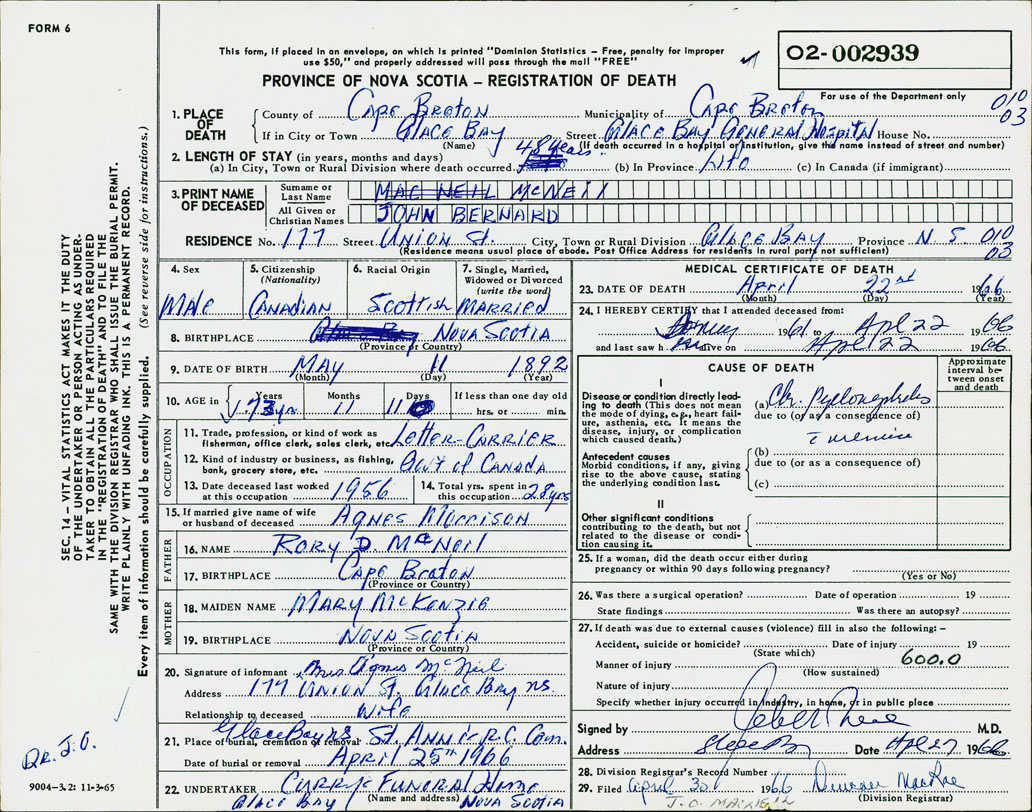 FORM 6
This form, if placed in an envelope, on which is printed "Dominion Statistics – Free, penalty for improper
use $50," and properly addressed will pass through the mail "FREE"
02-002939
PROVINCE OF NOVA SCOTIA – REGISTRATION OF DEATH
For use of the Department only
010
03
1. PLACE OF DEATH
County of Cape Breton Municipality of Cape Breton
If in City or Town Glace Bay Street Glace Bay General Hospital House No.
(Name) (If death occurred in a hospital or institution, give the name instead of street and number)
2. LENGTH OF STAY (in years, months and days)
48 years
(a) In City, Town or Rural Division where death occurred (b) In Province Life (c) In Canada (if immigrant)
3. PRINT NAME OF DECEASED
Surname or Last Name MAC NEIL McNEIL
All Given or Christian Names JOHN BERNARD
RESIDENCE No. 177 Street Union St. City, Town or Rural Division Glace Bay Province N S 010
03
(Residence means usual place of abode. Post Office Address for residents in rural parts not sufficient)
4. Sex
Male
5. Citizenship
(Nationality)
Canadian
6. Racial Origin
Scottish
7. Single, Married,
Widowed or Divorced
(write the word)
Married
8. BIRTHPLACE Nova Scotia
(Province or Country)
9. DATE OF BIRTH May 11 1892
(Month) (Day) (Year)
10. AGE in Years Months Days If less than one day old
73 yrs 11 11 hrs. or min.
OCCUPATION
11. Trade, profession, or kind of work as
fisherman, office clerk, sales clerk, etc. Letter-Carrier
12. Kind of industry or business, as fishing,
bank, grocery store, etc. Gov't of Canada
13. Date deceased last worked
at this occupation 1956
14. Total yrs. spent in
this occupation 28 yrs
15. If married give name of wife
or husband of deceased Agnes Morrison
FATHER
16. NAME Rory D. McNeil
17. BIRTHPLACE Cape Breton
(Province or Country)
MOTHER
18. MAIDEN NAME Mary McKenzie
19. BIRTHPLACE Nova Scotia
(Province or Country)
20. Signature of informant Mrs Agnes McNeil
Address 177 Union St. Glace Bay NS.
Relationship to deceased Wife
Glace Bay NS
21. Place of burial, cremation or removal St. Anne R.C. Cem.
Date of burial or removal April 25th 1966
22. UNDERTAKER Curry's Funeral Home
(Name and address)
Glace Bay Nova Scotia
MEDICAL CERTIFICATE OF DEATH
23. DATE OF DEATH April 22nd 1966
(Month) (Day) (Year)
24. I HEREBY CERTIFY that I attended deceased from:
1961 to Apl 22 1966
and last saw h alive on Apl 22 1966
CAUSE OF DEATH
Approximate
interval be-
tween onset
and death
I
Disease or condition directly lead-
ing to death (This does not mean
the mode of dying, e.g., heart fail-
ure, asthenia, etc. It means the
disease, injury, or complication
which caused death.)
(a) Chr. Pyelonephritis
due to (or as a consequence of)
uremia
Antecedent causes
Morbid conditions, if any, giving
rise to the above cause, stating
the underlying condition last.
(b)
due to (or as a consequence of)
(c)
II
Other significant conditions
contributing to the death, but not
related to the disease or condi-
tion causing it.
25. If a woman, did the death occur either during
pregnancy or within 90 days following pregnancy?
(Yes or No)
26. Was there a surgical operation? Date of operation 19
State findings Was there an autopsy?
27. If death was due to external causes (violence) fill in also the following:–
Accident, suicide or homicide? Date of injury 19
(State which)
600.0
Manner of injury
(How sustained)
Nature of injury
Specify whether injury occurred in industry, in home, or in public place
Signed by M.D.
Address Glace Bay Date Apl 27 1966
28. Division Registrar's Record Number
29. Filed April 30 1966 Duncan MacRae
(Division Registrar)
SEC. 14 – VITAL STATISTICS ACT MAKES IT THE DUTY
OF THE UNDERTAKER OR PERSON ACTING AS UNDER-
TAKER TO OBTAIN ALL THE PARTICULARS REQUIRED
IN THE "REGISTRATION OF DEATH" AND TO FILE THE
SAME WITH THE DIVISION REGISTRAR WHO SHALL ISSUE THE BURIAL PERMIT.
WRITE PLAINLY WITH UNFADING INK. THIS IS A PERMANENT RECORD.
Every item of information should be carefully supplied. (See reverse side for instructions.)
Dr. J.O.
9004-3.2: 11-3-65